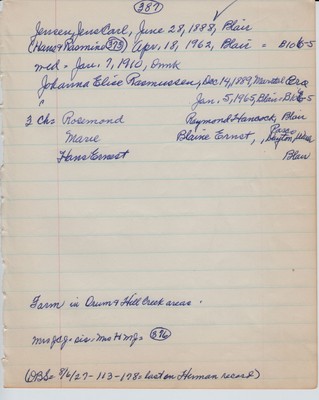 387
Jensen, Jens Carl, June 28, 1888, Blair
(Hans & Rasmine 373) Apr. 18, 1962, Blair = B106-5
md = Jan. 7, 1910, Dmk
Johanna Elise Rasmussen, Dec 14, 1889,
Jan. 5, 1965, Blair,
3 Ch: Rosemond Raymond Hancock, Blair
Marie Blaine Ernst, Dayton, Wash
Hans Ernest Blair
Farm in Orum & Hill Creek areas.
Mrs JCJ = sis, Mrs HMJ = 376
(PBS = 8/6/27 - 113 - 178 = last on Herman record)